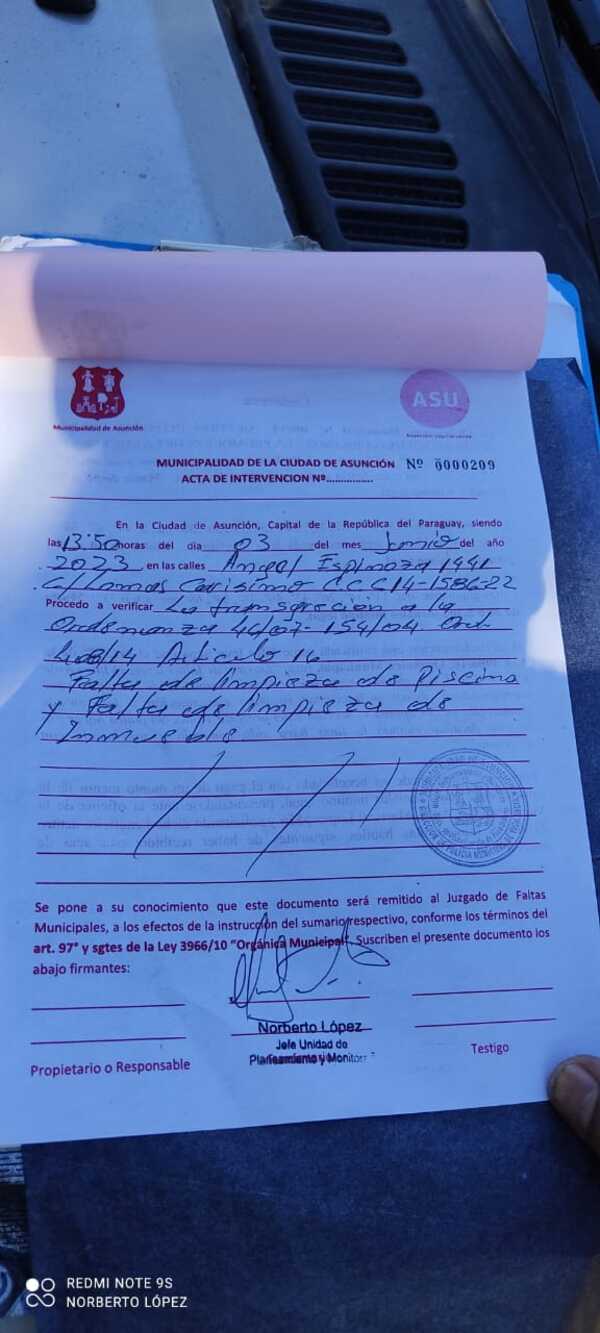 Municipalidad de Asunción
ASU
MUNICIPALIDAD DE LA CIUDAD DE ASUNCIÓN Nº 0000209
ACTA DE INTERVENCION Nº...............
En la Ciudad de Asunción, Capital de la República del Paraguay, siendo
las 13:50 horas del día 03 del mes Junio del año
2023 en las calles Angel Espinoza 1991
c/ Lomas Carisimo C.C.C 14-1586-22
Procedo a verificar La transgreción a la
Ordenanza 46/07-154/04 Ord
408/14 Articulo 16
Falta de limpieza de Piscina
y Falta de limpieza de
Inmueble
Se pone a su conocimiento que este documento será remitido al Juzgado de Faltas
Municipales, a los efectos de la instrucción del sumario respectivo, conforme los términos del
art. 97° y sgtes de la Ley 3966/10 "Orgánica Municipal". Suscriben el presente documento los
abajo firmantes:
Norberto López
Jefe Unidad de
Planeamiento y Monitor
Propietario o Responsable
Testigo
REDMI NOTE 9S
NORBERTO LÓPEZ